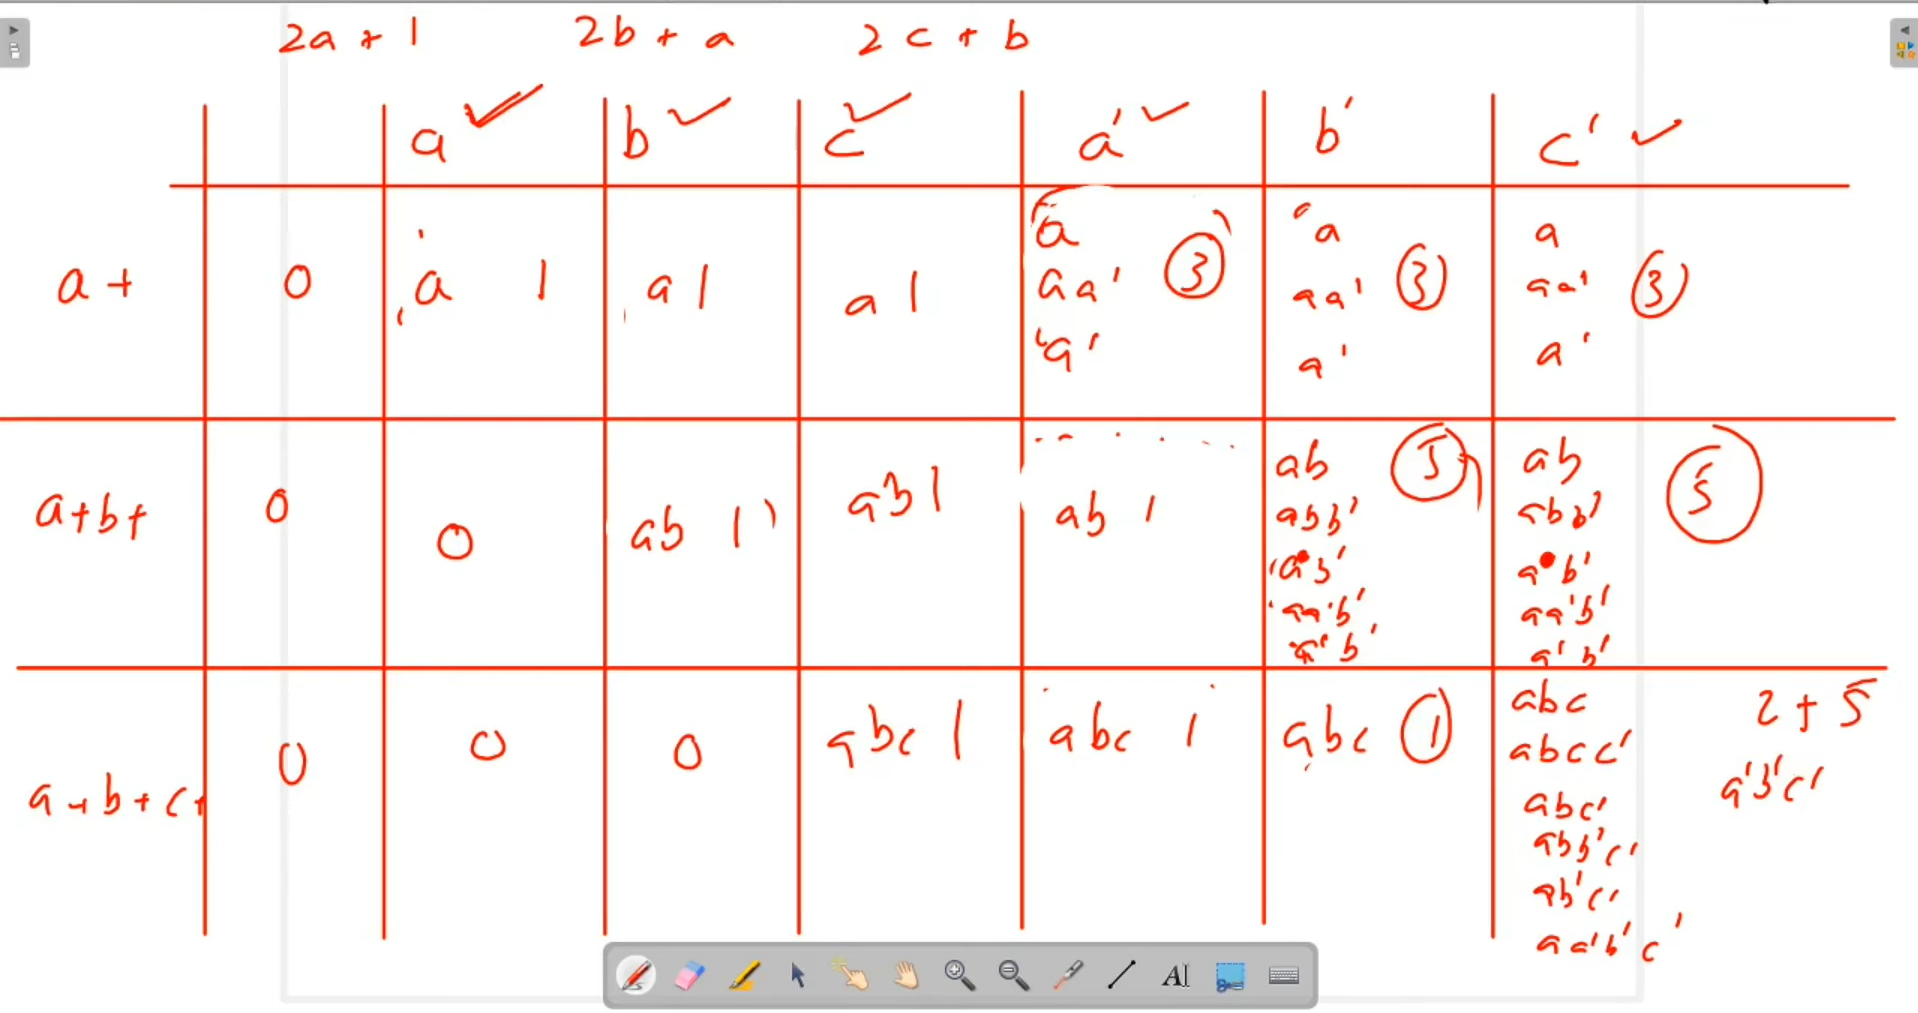 2a + 1 2b + a 2c + b
a b c a' b' c'
a+ 0 a 1 a 1 a 1
a
aa' 3
a'
a
aa' 3
a'
a
aa' 3
a'
a+b+ 0 0 ab 1 ab 1 ab 1
ab 5
abb'
ab'
aa'b'
a'b'
ab 5
abb'
ab'
aa'b'
a'b'
a+b+c+ 0 0 0 abc 1 abc 1 abc 1
abc
abcc'
abc'
abb'c'
ab'c'
aa'b'c'
2 + 5
a'b'c'
AI